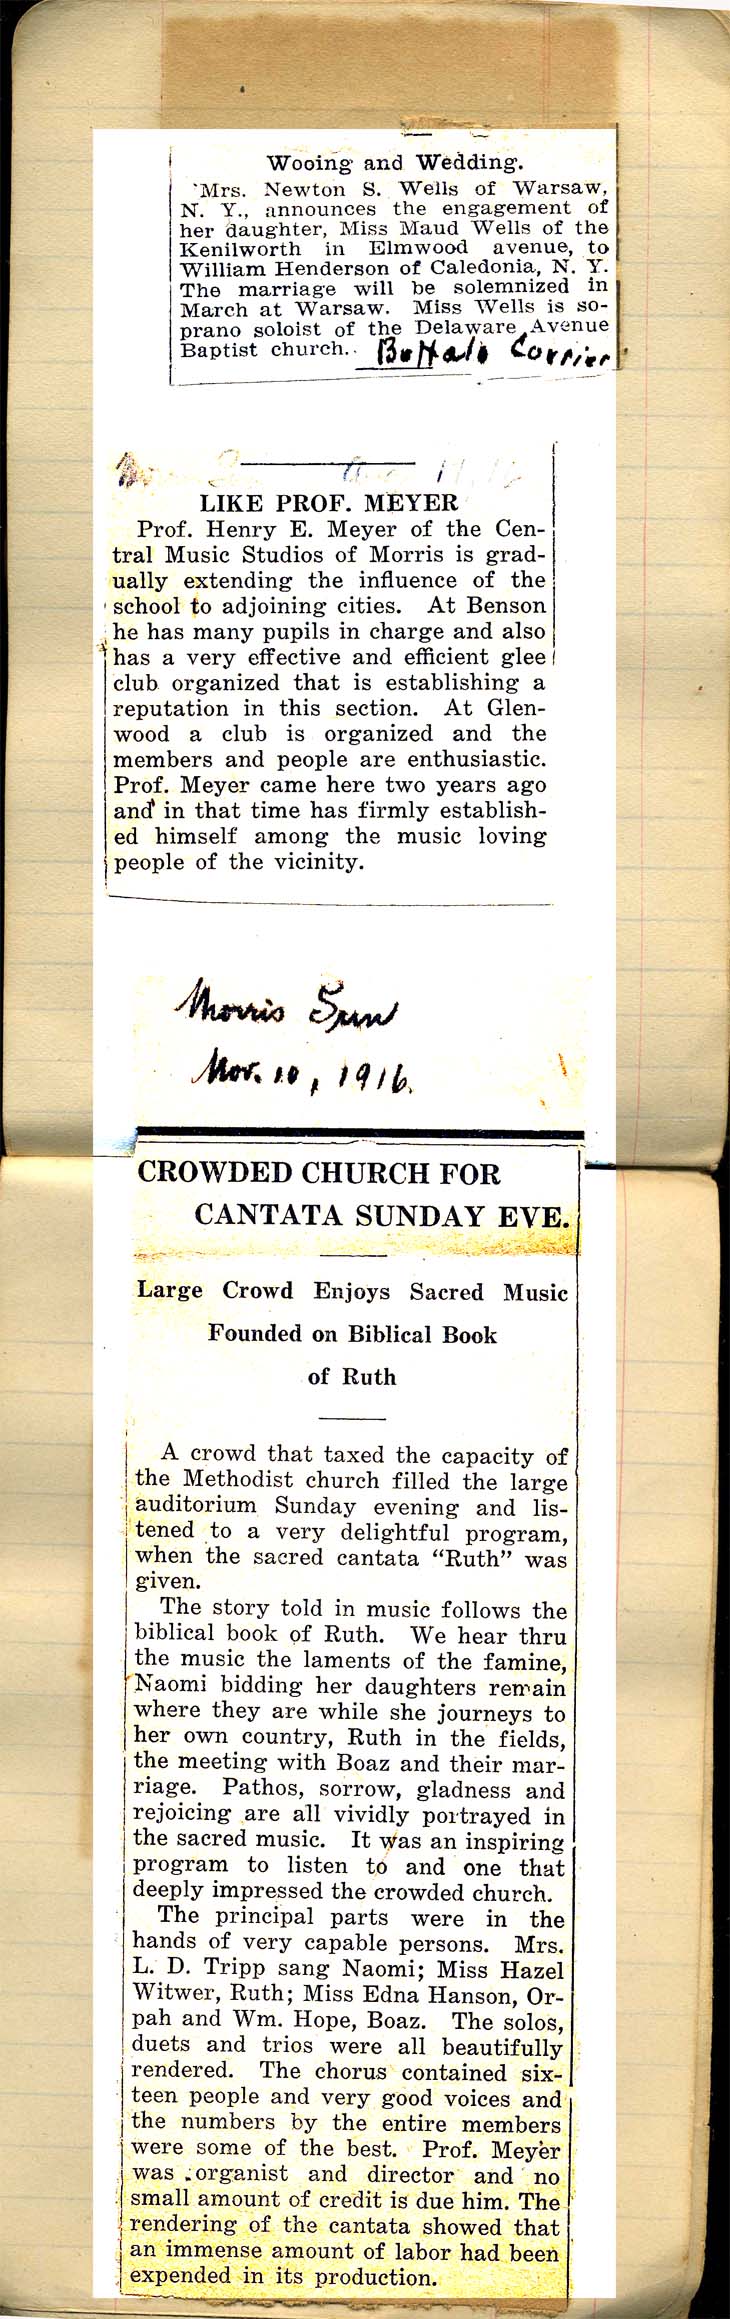 Wooing and Wedding.
Mrs. Newton S. Wells of Warsaw,
N. Y., announces the engagement of
her daughter, Miss Maud Wells of the
Kenilworth in Elmwood avenue, to
William Henderson of Caledonia, N. Y.
The marriage will be solemnized in
March at Warsaw. Miss Wells is so-
prano soloist of the Delaware Avenue
Baptist church.. Buffalo Courier
LIKE PROF. MEYER
Prof. Henry E. Meyer of the Cen-
tral Music Studios of Morris is grad-
ually extending the influence of the
school to adjoining cities. At Benson
he has many pupils in charge and also
has a very effective and efficient glee
club organized that is establishing a
reputation in this section. At Glen-
wood a club is organized and the
members and people are enthusiastic.
Prof. Meyer came here two years ago
and in that time has firmly establish-
ed himself among the music loving
people of the vicinity.
Morris Sun
Nov. 10, 1916.
CROWDED CHURCH FOR
CANTATA SUNDAY EVE.
Large Crowd Enjoys Sacred Music
Founded on Biblical Book
of Ruth
A crowd that taxed the capacity of
the Methodist church filled the large
auditorium Sunday evening and lis-
tened to a very delightful program,
when the sacred cantata “Ruth” was
given.
The story told in music follows the
biblical book of Ruth. We hear thru
the music the laments of the famine,
Naomi bidding her daughters remain
where they are while she journeys to
her own country, Ruth in the fields,
the meeting with Boaz and their mar-
riage. Pathos, sorrow, gladness and
rejoicing are all vividly portrayed in
the sacred music. It was an inspiring
program to listen to and one that
deeply impressed the crowded church.
The principal parts were in the
hands of very capable persons. Mrs.
L. D. Tripp sang Naomi; Miss Hazel
Witwer, Ruth; Miss Edna Hanson, Or-
pah and Wm. Hope, Boaz. The solos,
duets and trios were all beautifully
rendered. The chorus contained six-
teen people and very good voices and
the numbers by the entire members
were some of the best. Prof. Meyer
was organist and director and no
small amount of credit is due him. The
rendering of the cantata showed that
an immense amount of labor had been
expended in its production.